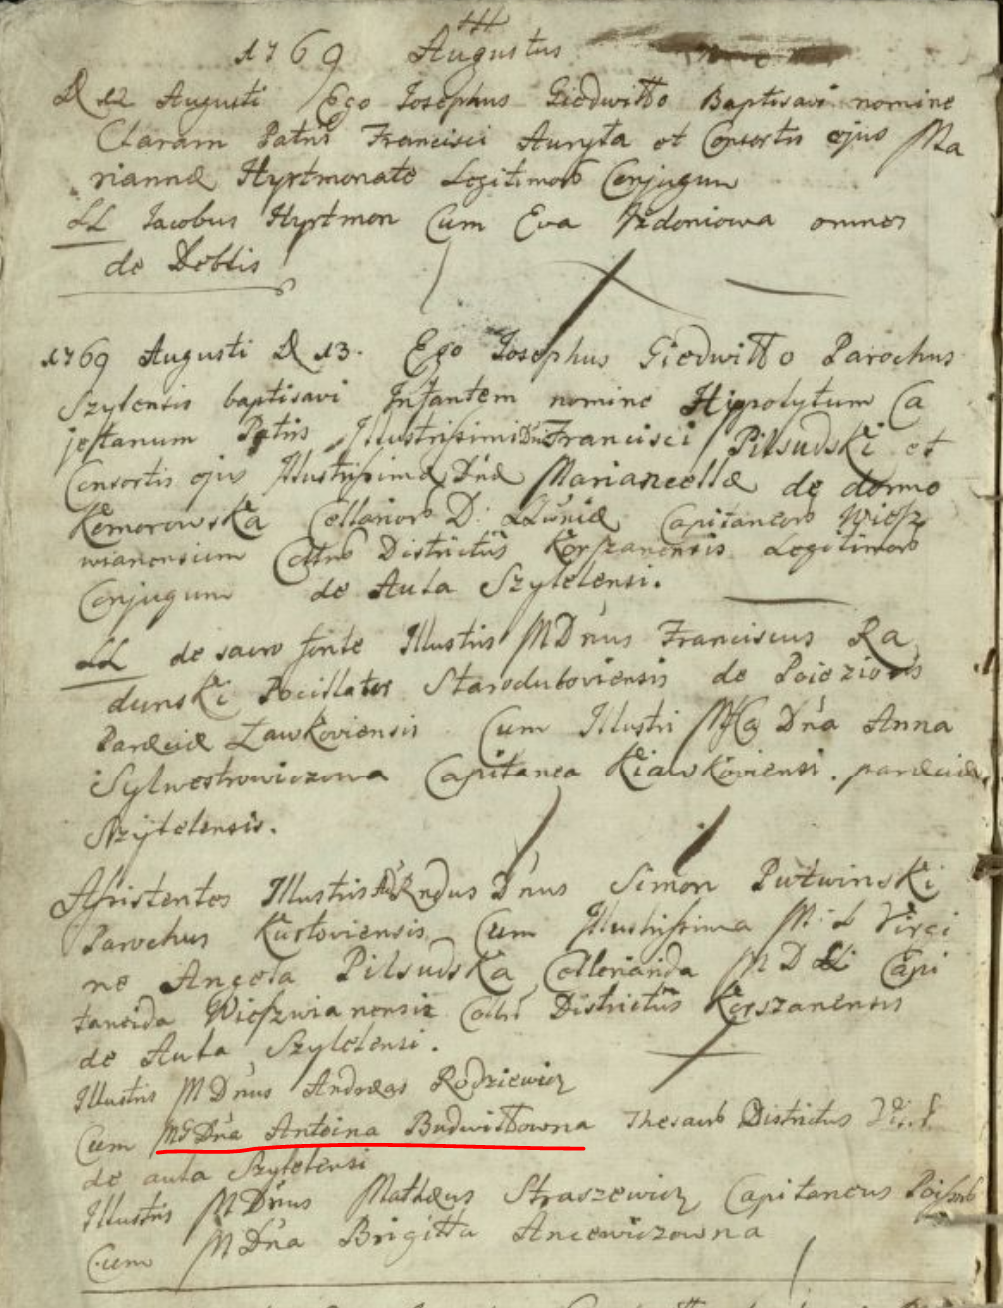 1769 Augustus
D 12 Augusti Ego Josephus Giedwiłło Baptisavi nomine
Claram Patris Francisci Auryła et Consortis ejus Ma
riannæ Hyrtmonate Legitimorb Conjugum
LL Jacobus Hyrtmon Cum Eva omnes
de Deblis
1769 Augusti D 13. Ego Josephus Giedwiłło Parochus
Szylensis baptisavi Infantem nomine Hippolytum Ca
jetanum Patris Illustrissimi Dni Francisci Pilsudski et
Consortis ejus Illustrissimæ Dnæ Mariancellæ de domo
Komorowska D. Capitaneorb Wiesz
wianensium Districtus Korszanensis Legitimorb
Conjugum de Aula Szylelensi.
LL de sacro fonte Illustris MDnus Franciscus Ra
dunski Pocillator Staroduboviensis de
Paræciæ Ławkoviensis Cum Illustri Dna Anna
Sylwestrowiczowa Capitanea . paræciæ
Szylelensis.
Assistentes Illustris Rndus Dnus Simon Putwinski
Parochus Kurtoviensis Cum Illustrissima Virgi
ne Angela Pilsudska M D Capi
taneida Wieszwianensis Districtus Korszanensis
de Aula Szylelensi.
Illustris MDnus Andræas Rodziewicz
Cum Dna Antoina Budwiłłowna Thesaurb Districtus
de aula Szylelensi
Illustris MDnus Mathæus Straszewicz Capitaneus
Cum MDna Brigitta Ancewiczowna